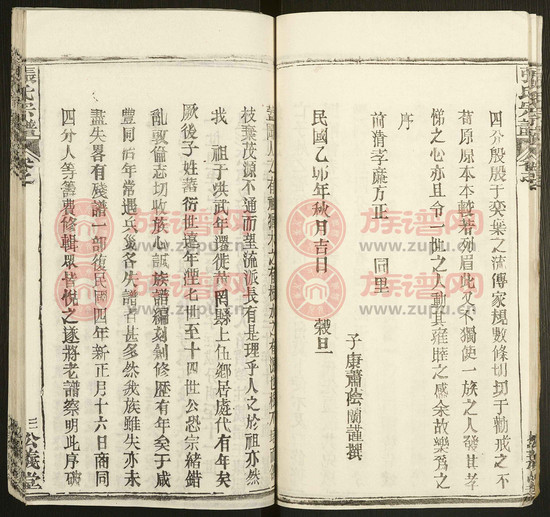 張氏宗譜
四分殷殷于奕葉之流傳家規數條切切于勸戒之不
苟原原本本載若列眉此又不獨使一族之人發其孝
悌之心亦且令一世之人動其雍睦之感余故樂為之
序
前清孝廉方正 同里
子康蕭 蘭謹撰
民國乙卯年秋月吉日 穀旦
枝葉茂源不通而望流派長有是理乎人之於祖亦然
我 祖于洪武年遷徙黃岡縣上伍鄉居處代有年矣
厥後子姓蕃衍世遠年 七世至十四世公恐宗緒錯
亂敦倫志切收放心誠族譜編刻創修歷有年矣于咸
豐同治年常遇兵災各失譜 甚多然我族雖失亦未
盡失畧有殘譜一部復民國四年新正月十六日商同
四分人等籌費修輯眾皆悅之遂將老譜察明此序破
張氏宗譜
三 公義堂
族谱网
www.zupu.cn